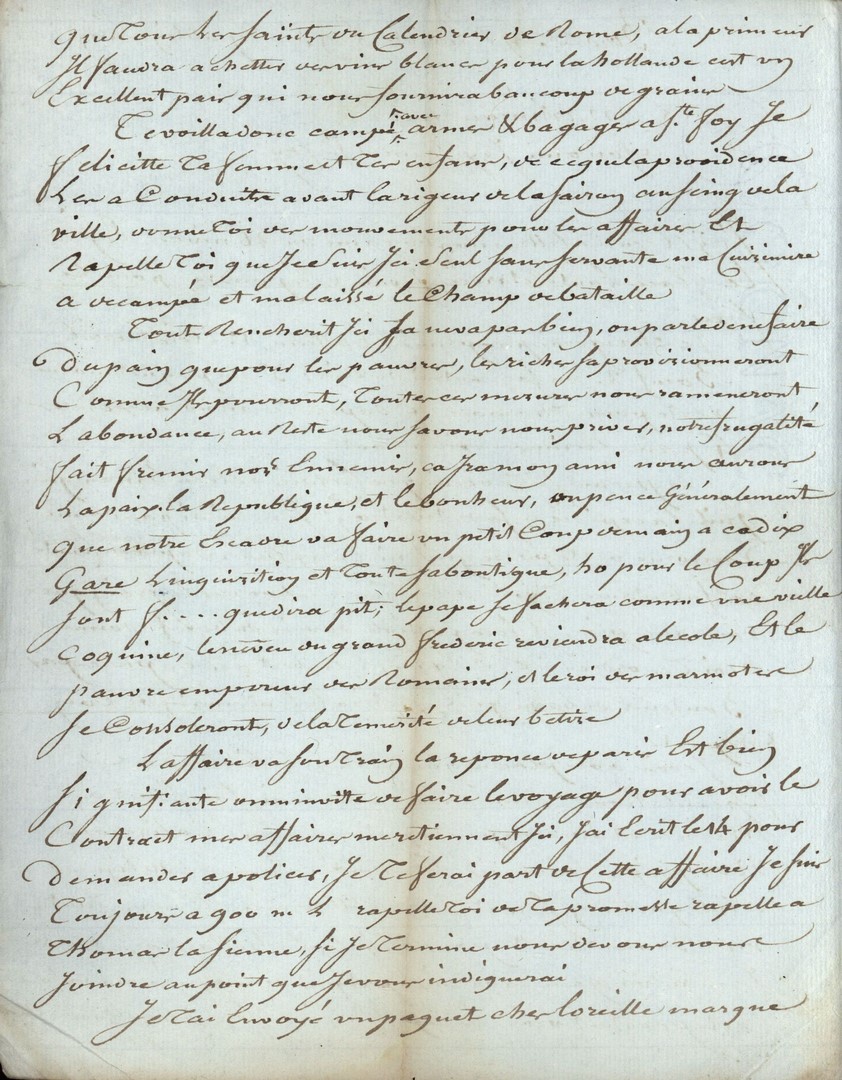 que Tous Les saints du Calendrier de Rome, a la primeur
Il faudra achetter des vins blancs pour la hollande cest un
Excellent pais qui nous fournira baucoup de graine
Te voilla donc campé avec armes & bagages a Ste. Foy Je
felicitte Ta femme et Tes enfans, de ce que la providence
Les a Conduitte avant la rigeur de la saison au seing de la
ville, donne Toi des mouvements pour les affaires Et
Rapelle Toi que Je suis Ici seul sans servante ma Cuisiniere
a decampé et ma laissé le Champ de bataille
Tout Rencherit Ici Ça ne va pas bien, on parle de ne faire
Du pain que pour les pauvres, les riches saprovizionneront
Comme Ils pourront, Toutes ces mezures nous rameneront
Labondance, au Reste nous savons nous priver, notre frugalité
fait fremir nos Ennemis, ça Ira mon ami nous aurons
La paix la Republique, et le bonheur, on pence Généralement
que notre Escadre va faire un petit Coup de main a cadix
Gare Linquisition et Toute sa boutique, ho pour le Coup Ils
sont f.... que dira pit; le pape se fachera comme une vielle
coquine, le neveu du grand frederic reviendra a lecole, Et le
pauvre empereur des Romains, et le roi des marmotes
se Consoleront, de la Temerité de leur betize
Laffaire va son Train la reponce de paris Est bien
signifiante on minvite de faire le voyage pour avoir le
Contract mes affaires me retiennent Ici, Jai Ecrit le 14 pour
Demander a polices, Je Te ferai part de Cette affaire Je suis
Toujours a 900 m L rapelle Toi de Ta promesse rapelle a
Thomas la sienne, si Je Termine nous devons nous
Joindre au point que Je vous indiquerai
Je Tai Envoyé un paquet ches loreille marque